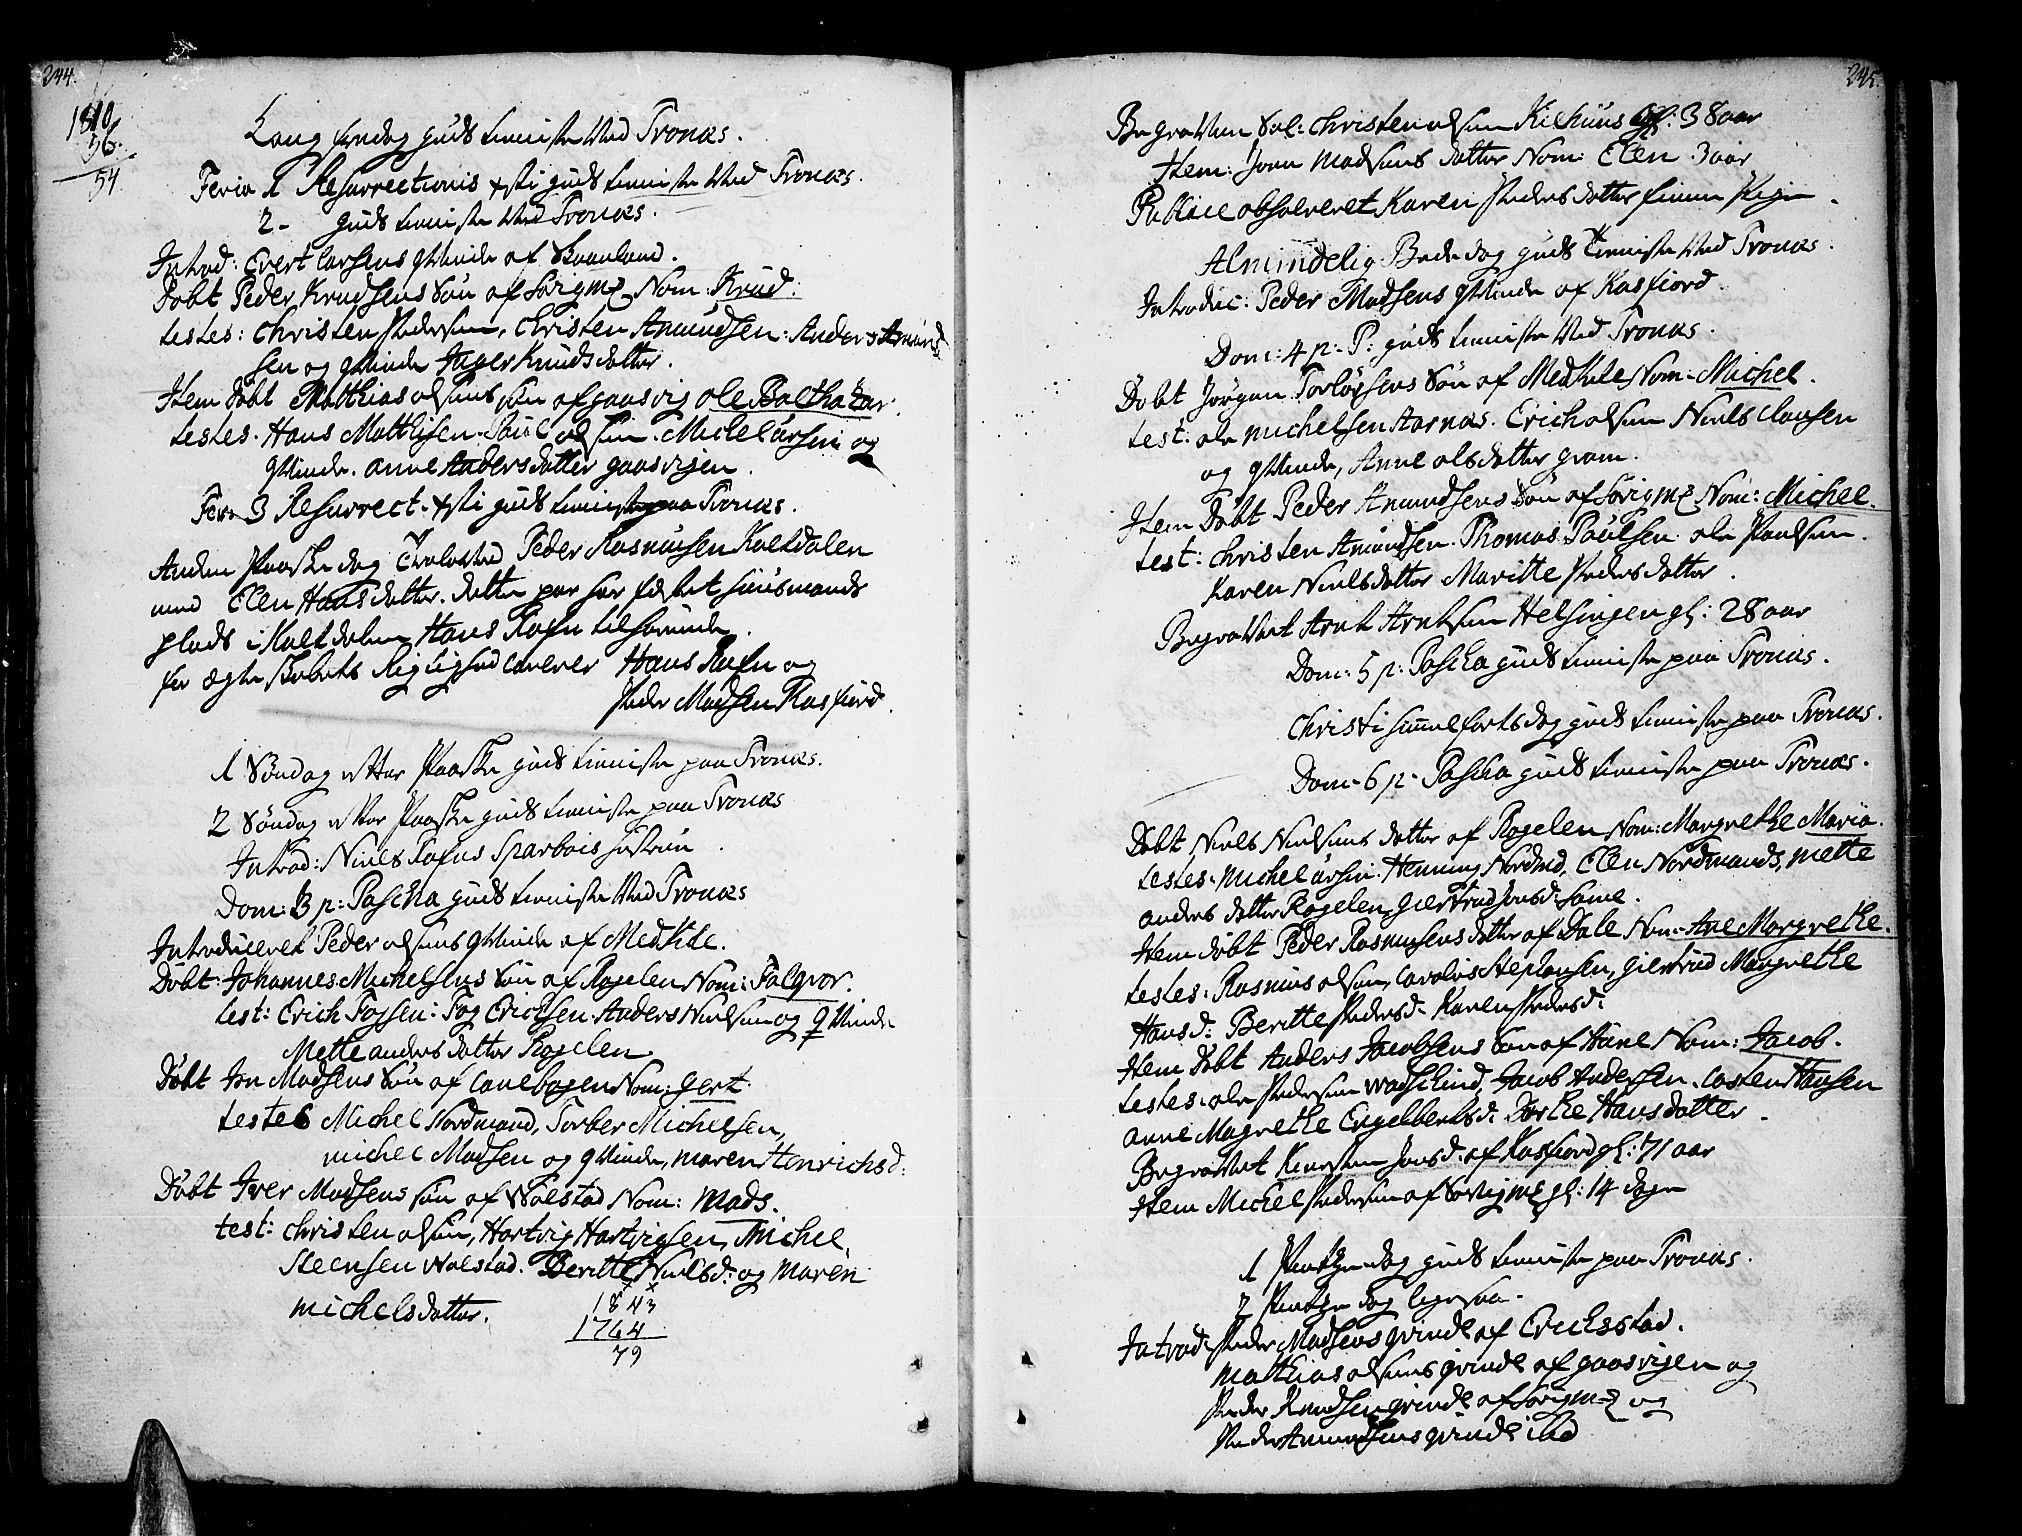 244.
1810
56.
54
Lang fredag guds tienniste Ved Tronæs.
Feria 1 Resurrectionis xsti guds tienniste Ved Tronæs.
2 - guds tienniste Ved Tronæs.
Introd: Evert Larsens qvinde af Skaanland.
Døbt Peder Knudsens Søn af Sørigm. Nom. Knud.
testes: Christen Pedersen, Christen Amundsen: Anders Amund
sen og qvinde Inger Knudsdatter.
Item Døbt Matthias olsens søn af gaasvig ole Balthazar.
testes. Hans Matthisen. Paul olsen. Michel Larsen og
qvinde. Anne Andersdatter gaasvigen.
Fer. 3 Resurrect. xsti guds tienniste paa Tronæs.
Anden Paaske dag Troloved Peder Rasmusen Kaltdalen
med Elen Hansdatter. dette par har fæstet huusmands
plads i Kaltdalen Hans Rafn tilhørende.
for ægteskabets Rigtighed caverer Hans Rafn og
Peder Madsen Kasfiord.
1 Søndag efter Paaske guds tienniste paa Tronæs.
2 Søndag efter Paaske guds tienniste paa Tronæs
Introd: Niels Rafns Sparbois hustrue.
Dom: 3 p: Pascha guds tienniste Ved Tronæs
Introduceret Peder olsens qvinde af Medkile.
Døbt Johannes Michelsens Søn af Rogelen Nom: Falqvor.
test: Erich Fogsen: Fog Erichsen. Anders Nielsen og qvinde
Mette anders datter Rogelen
Døbt Jon Madsens Søn af Lanebogen Nom: gert.
testes Michel Nordmand, Torber Michelsen,
michel Madsen og qvinde, maren Henrichsd:
Døbt Iver Madsens søn af Volstad Nom: Mads.
test: Christen olsen, Hartvig Hartvigsen, Michel
Steensen Volstad. Beritte Nielsd: og Maren
michelsdatter.
1843
1764
79
245.
Begraven Sal: Christen olsen Kilhuus gl: 38 aar
Item: Joen Madsens datter Nom: Elen 3 aar
Publice absolveret Karen Peders datter finne Pige.
Almindelig Bededag guds tienniste Ved Tronæs.
Introduc: Peder Madsens qvinde af Kasfiord.
Dom: 4 p. P: guds tienniste Ved Tronæs.
Døbt Jørgen Torløfsens Søn af Medkile Nom. Michel.
test: ole michelsen Aarnæs. Erich olsen Niels Clausen
og qvinde, Anne olsdatter gram.
Item Døbt Peder Amundsens Søn af Sørigm. Nom: Michel.
test: Christen Amundsen. Thomas Paulsen ole Paulsen.
Karen Nielsdatter Maritte Pedersdatter.
Begravet Arnt Arntsen Helsingen gl: 28 aar
Dom: 5 p: Pascha guds tienniste paa Tronæs.
Christi himmelfarts dag guds tienniste paa Tronæs.
Dom. 6 p. Pascha guds tienniste paa Tronæs.
Døbt Niels Nielsens datter af Rogelen Nom: Margrethe Maria.
testes. Michel Larsen. Henning Nordmd, Elen Nordmands, Mette
anders datter Rogelen, giertrud Jonsd: same.
Item døbt Peder Rasmusens datter af Dale Nom. Ane Margrethe.
testes. Rasmus olsen, Carolus Stephansen, giertrud Margrethe
Hansd: Beritte Pedersd. Karen Pedersd:
Item Døbt Anders Jacobsens Søn af Hane Nom: Jacob.
testes. ole Pedersen Wadselind, Jacob Andersen. Casten Hansen
anne Magrethe Engelbertsd. Dorthe Hansdatter.
Begravet Kiersten Jonsd. af Kasfiord gl: 71 aar
Item Michel Pedersen af Sørigm. gl: 14 dage
1 Pintze dag guds tienniste paa Tronæs.
2 Pintze dag ligesaa.
Introd: Peder Madsens qvinde af Erichsstad.
Matthias olsens qvinde af gaasvigen og
Peder Knudsens qvinde af Sørigm. og
Peder Amundsens qvinde ibid